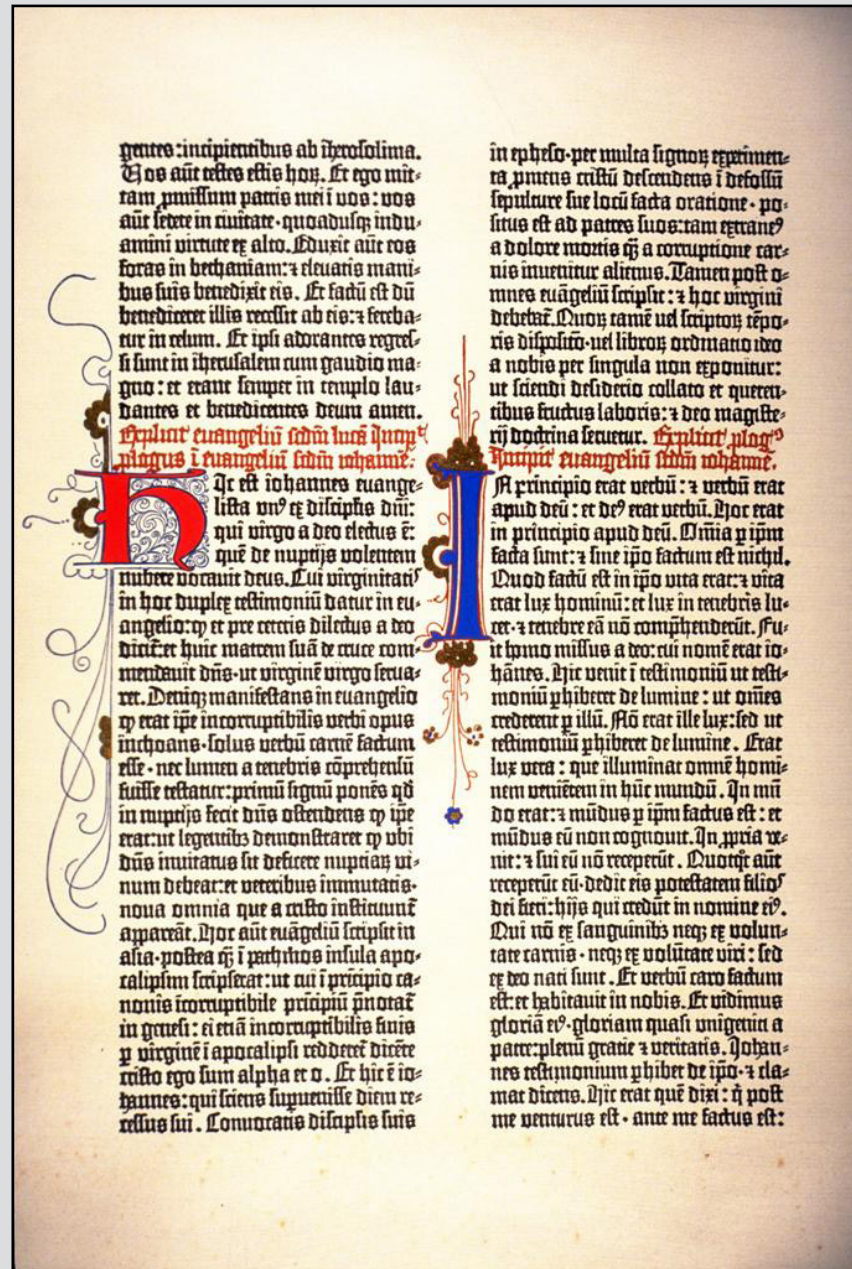 gentes : incipientibus ab iherosolima.
Vos aūt testes estis hoꝝ. Et ego mit-
tam ꝓmissum patris mei ī vos : vos
aūt sedete in civitate · quoadusqꝫ indu-
amini virtute ex alto. Eduxit aūt eos
foras in bethaniam : ⁊ elevatis mani-
bus suis benedixit eis. Et factū est dū
benediceret illis recessit ab eis : ⁊ fereba-
tur in celum. Et ipsi adorantes regres-
si sunt in iherusalem cum gaudio ma-
gno : et erant semper in templo lau-
dantes et benedicentes deum amen.
Explicit evangeliū scdm lucā Incipit
ꝓlogus ī evangeliū scdm iohannē.
Hic est iohannes evange-
lista unꝰ ex discipl̄is dn̄i :
qui virgo a deo electus ē :
quē de nuptijs volentem
nubere vocavit deus. Cui virginitatis
in hoc duplex testimoniū datur in eu-
angelio : ꝙ et pre ceteris dilectus a deo
dicit͛ : et huic matrem suā de cruce com-
mendavit dn̄s · ut virginē virgo serva-
ret. Deniqꝫ manifestans in evangelio
ꝙ erat ip̄e incorruptibilis verbi opus
inchoans · solus verbū carnē factum
esse · nec lumen a tenebris cōprehensū
fuisse testatur : primū signū ponēs qd̄
in nuptijs fecit dn̄s ostendens ꝙ ip̄e
erat : ut legentibꝫ demonstraret ꝙ ubi
dn̄s invitatus sit deficere nuptiaꝝ vi-
num debeat : et veteribus immutatis ·
nova omnia que a cristo instituunt͛
appareāt. Hoc aūt evāgeliū scripsit in
asia · postea q̄ꝫ ī pathmos insula apo-
calipsim scripserat : ut cui ī prīcipio ca-
nonis īcorruptibile prīcipiū p̄notat͛
in genesi : ei etiā incorruptibilis finis
ꝑ virginē ī apocalipsi redderet͛ dicēte
cristo ego sum alpha et o. Et hic ē io-
hannes : qui sciens supervenisse diem re-
cessus sui. Convocatis discipl̄is suis
in epheso · per multa signoꝝ experimen-
ta ꝓmens cristū descendens ī defossū
sepulture sue locū facta oratione · po-
situs est ad patres suos : tam extraneꝰ
a dolore mortis q̄ꝫ a corruptione car-
nis invenitur alienus. Tamen post o-
mnes evāgeliū scripsit : ⁊ hoc virgini
debebat͛. Quoꝝ tamē vel scriptoꝝ tēpo-
ris dispositio · vel libroꝝ ordinatio ideo
a nobis per singula non exponitur :
ut sciendi desiderio collato et queren-
tibus fructus laboris : ⁊ deo magiste-
rij doctrina servetur. Explicit ꝓlogꝰ
Incipit evangeliū scdm iohannē.
IN principio erat verbū : ⁊ verbū erat
apud deū : et deꝰ erat verbū. Hoc erat
in principio apud deū. Omīa ꝑ ip̄m
facta sunt : ⁊ sine ip̄o factum est nichil.
Quod factū est in ip̄o vita erat : ⁊ vita
erat lux hominū : et lux in tenebris lu-
cet · ⁊ tenebre eā nō comp̄henderūt. Fu-
it homo missus a deo : cui nomē erat io-
hānes. Hic venit ī testimoniū ut testi-
moniū ꝑhiberet de lumine : ut omēs
crederent ꝑ illū. Nō erat ille lux : sed ut
testimoniū ꝑhiberet de lumine. Erat
lux vera : que illuminat omnē homi-
nem veniētem in hūc mundū. In mū-
do erat : ⁊ mūdus ꝑ ip̄m factus est : et
mūdus eū non cognovit. In ꝓpria ve-
nit : ⁊ sui eū nō receperūt. Quotq̄t aūt
receperūt eū · dedit eis potestatem filios
dei fieri : hijs qui credūt in nomine eiꝰ.
Qui nō ex sanguinibꝫ neqꝫ ex volun-
tate carnis · neqꝫ ex volūtate viri : sed
ex deo nati sunt. Et verbū caro factum
est : et habitavit in nobis. Et vidimus
gloriā eiꝰ · gloriam quasi unigeniti a
patre : plenū gratie ⁊ veritatis. Johan-
nes testimonium ꝑhibet de ip̄o · ⁊ cla-
mat dicens. Hic erat quē dixi : q̄ post
me venturus est · ante me factus est :